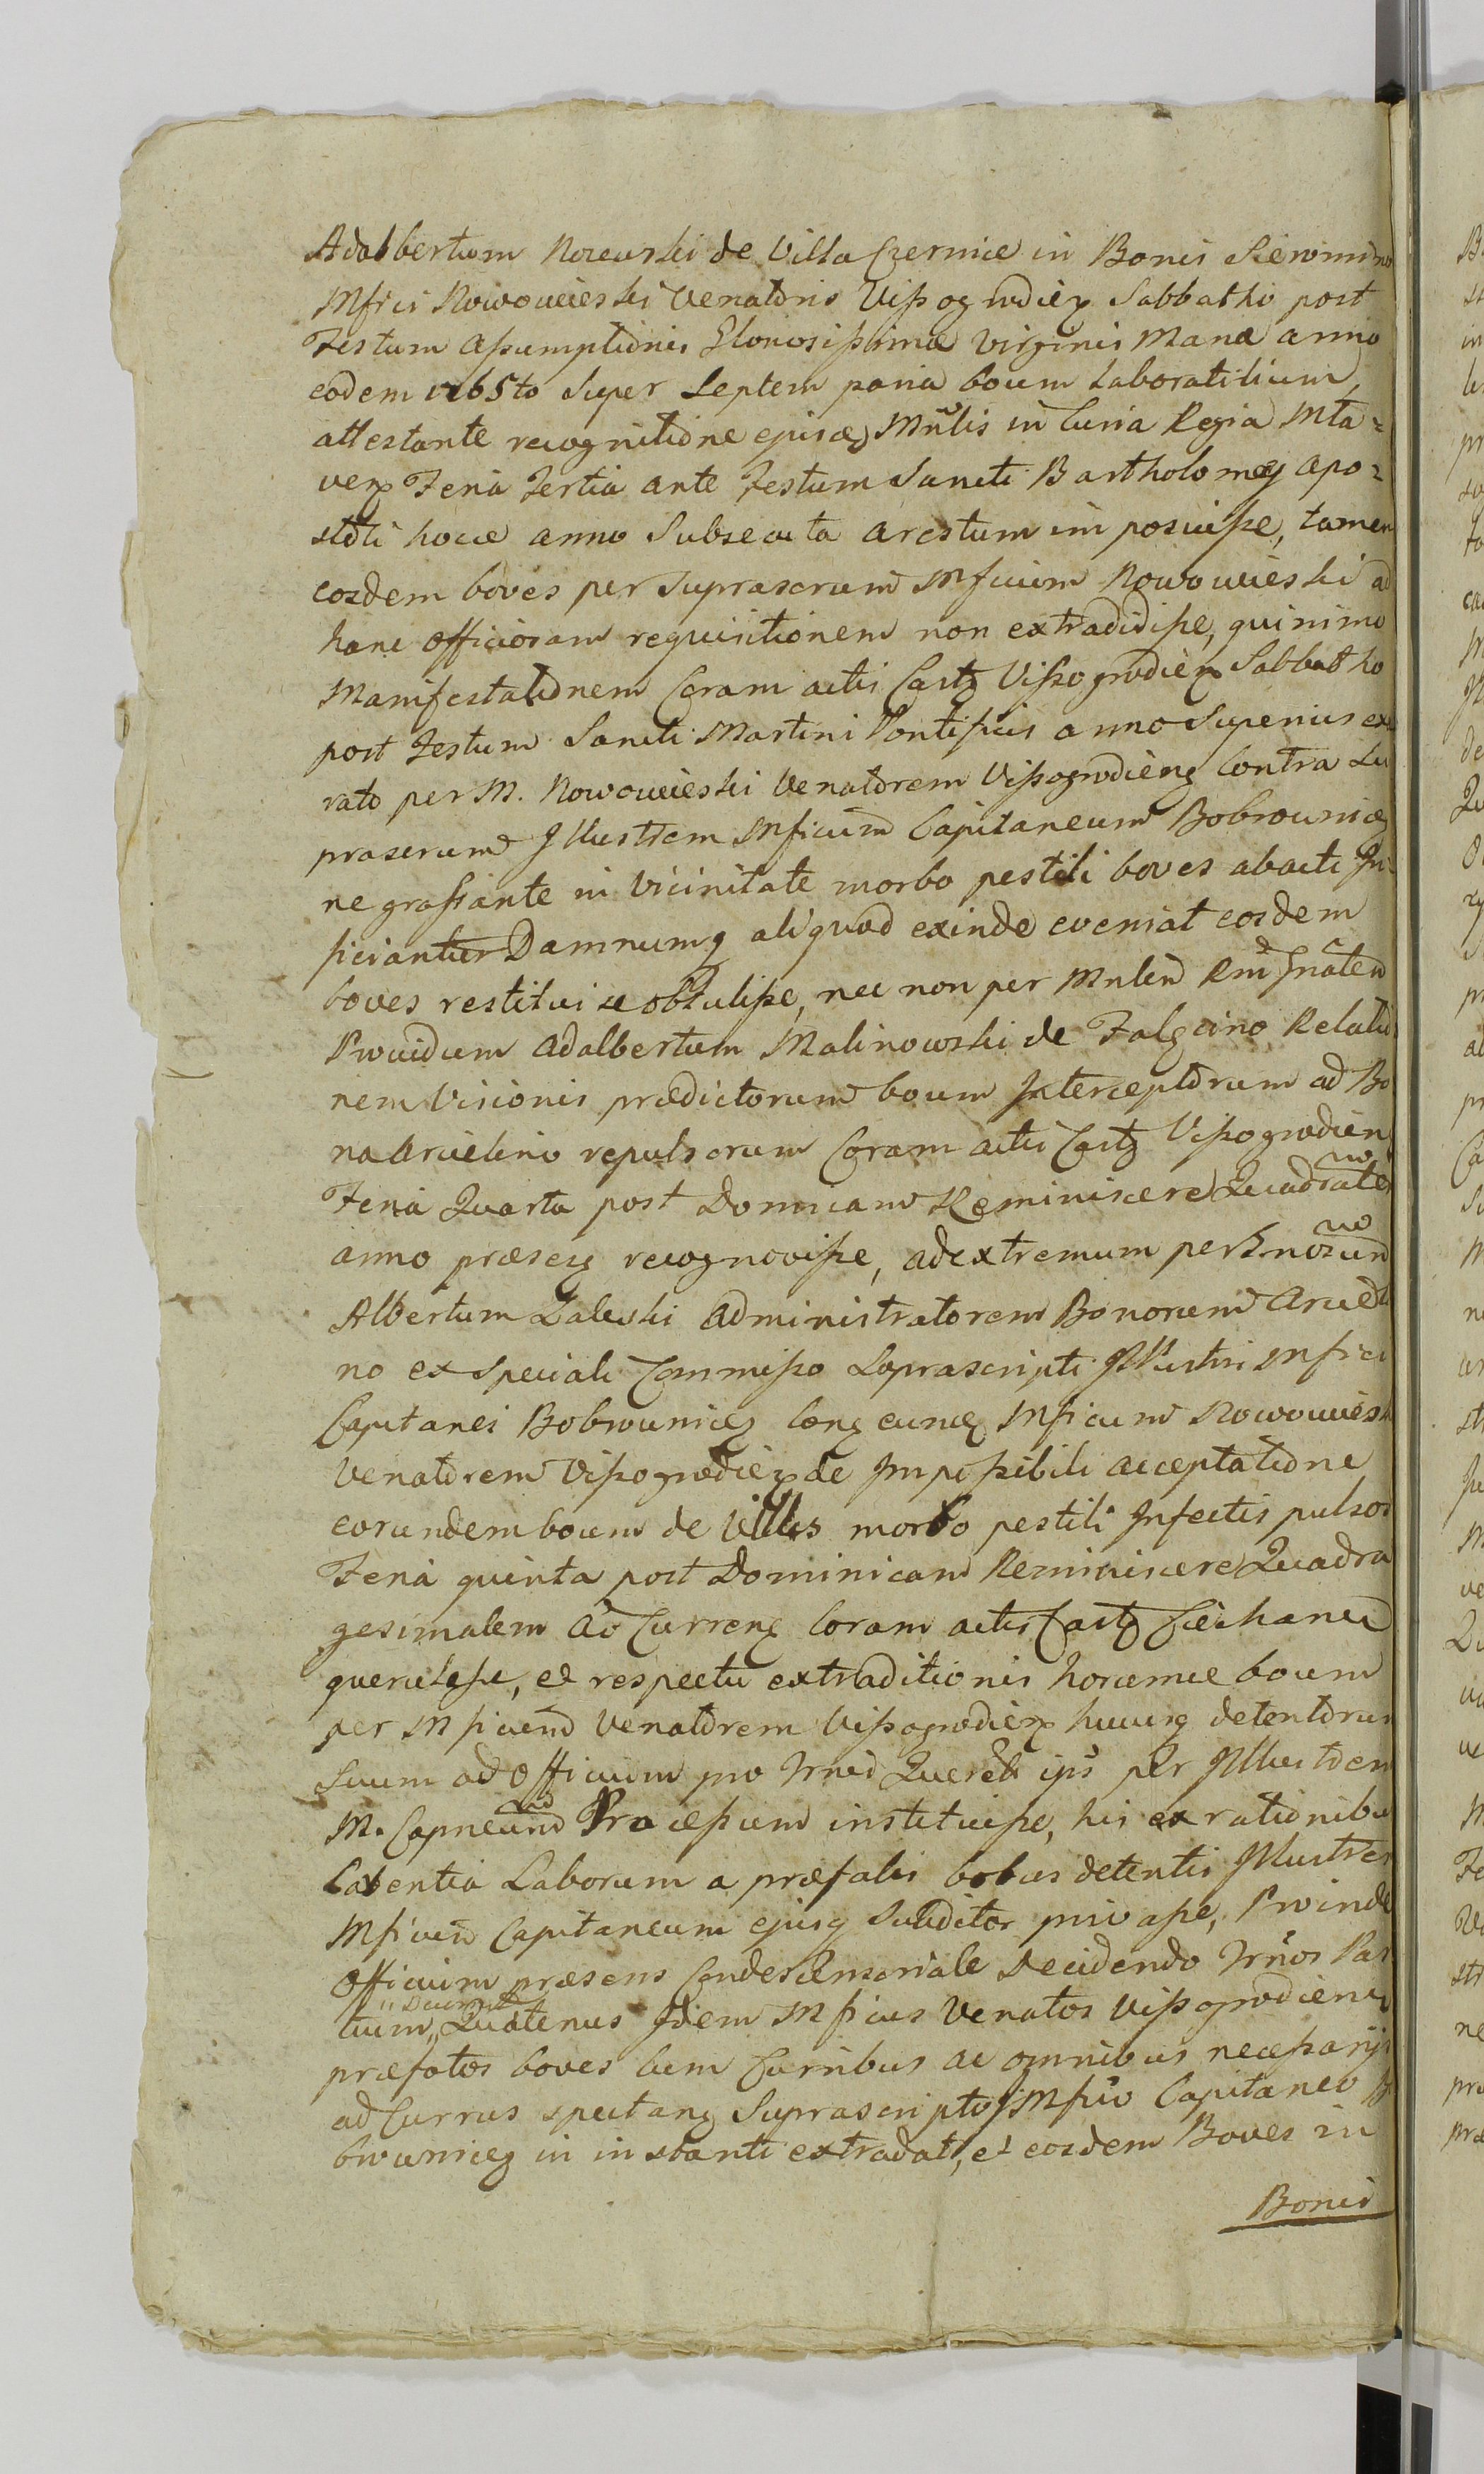 Adalbertum Nozewski de Villa Czernice in Bonis Sieromino
Mfici Nowowieyski Venatoris Vissogrodien Sabbatho post
Festum Assumptionis Gloriosissimæ Virginis Mariæ anno
eodem 1765to Super Septem paria boum laboratilium,
attestante recognitione ejusq Mnlis in Curia Regia Mta-
ven Feria Tertia ante Festum Sancti Bartholomæj Apo-
stoli hocce anno Subsecuta Arestum imposuisse, tamen
eosdem boves per Suprascrum Mficum Nowowieyski ad
hanc Officiosam requisitionem non extradidisse, quinimo
Manifestationem Coram actis Castz Vissogrodien Sabbatho
post Festum Sancti Martini Pontificis anno Superius exa
rato per M. Nowowieski Venatorem Vissogrodieng Contra Su
prascrum Illustrem Mficum Capitaneum Bobrowniceg
ne grassante in Vicinitate morbo pestili boves abacti In
ficiantur Damnumq aliquod exinde eveniat eosdem
boves restitui se obtulisse, nec non per Mnlem Rm Gnalem
Providum Adalbertum Malinowski de Falęcino Relatio
nem Visionis prædictorum boum Interceptorum ad Bo
na Arcielino repulsorum Coram actis Castz Vissogrodien
Feria Quarta post Domicam Reminiscere Quadralem
anno præseng recognovisse, ad extremum per Gnosum
Albertum Zaleski Administratorem Bonorum Arcieli
no ex Speciali Commisso Suprascripti Illustri Mfici
Capitanei Bobrowniceg Cong eundę Mficum Nowowieski
Venatorem Vissogrodien de Impossibili acceptatione
eorundem boum de Villis morbo pestili Infectis pulsos
Feria quinta post Dominicam Reminiscere Quadra
gesimalem Ao Curreng Coram actis Castz Ciechanen
querulasse, et respectu extraditionis horumce boum
per Mficum Venatorem Vissogrodien hucusq detentorum
Suum ad Officium pro Trnis Querela ips per Illustrem
M. Capneum Processum instituisse, his ex rationibus
Carentia Laborum a præfatis bobus detentis Illustrem
Mficum Capitaneum ejusq Subditos privasse, Proinde
Officium præsens Condescensoriale Decidendo Trnos Par
tium, Quatenus Idem Mficus Venator Vissogrodiensis
"Decernit
præfatos boves cum Curribus ac omnibus necessarijs
ad Currus spectang Suprascripto Mfico Capitaneo Bo
browniceg in instanti extradat, et eosdem Boves in
Bonis